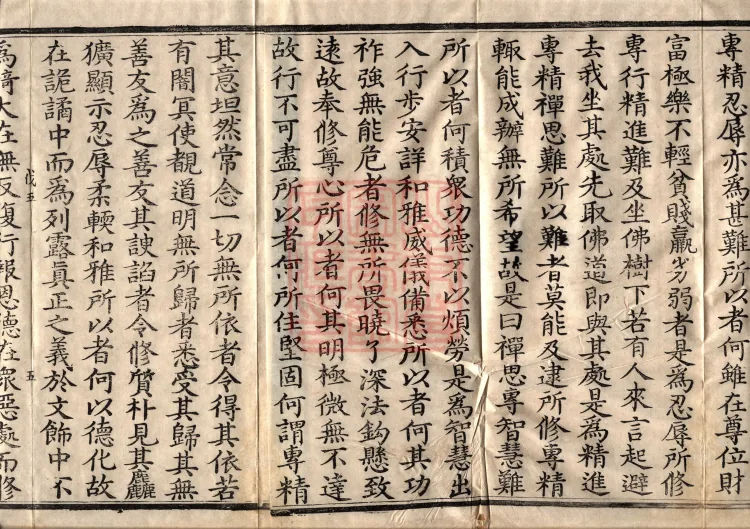 專精忍辱亦爲甚難所以者何雖在尊位財
富極樂不輕貧賤羸劣弱者是爲忍辱所修
專行精進難及坐佛樹下若有人來言起避
去我坐其處先取佛道即與其處是爲精進
專精禪思難所以難者莫能及逮所修專精
輙能成辦無所希望故是曰禪思專智慧難
所以者何積衆功德不以煩勞是爲智慧出
入行步安詳和雅威儀備悉所以者何其功
祚強無能危者修無所畏曉了深法鈎懸致
遠故奉修尊心所以者何其明極微無不達
故行不可盡所以者何所住堅固何謂專精
其意坦然常念一切無所依者令得其依若
有闇冥使覩道明無所歸者悉受其歸其無
善友爲之善友其諛諂者令修質朴見其麤
獷顯示忍辱柔輭和雅所以者何以德化故
在詭譎中而爲列露眞正之義於文飾中不
戊五
五
爲 大在無反復行報恩德在衆惡處而修